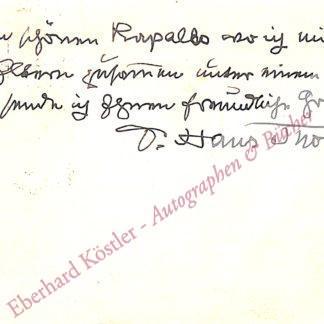 schönen Rapallo wo ich mi
Eltern zusammen unter einem
sende ich Ihnen freundliche Gr
Hans Tho
Eberhard Köstler - Autographen & Bücher